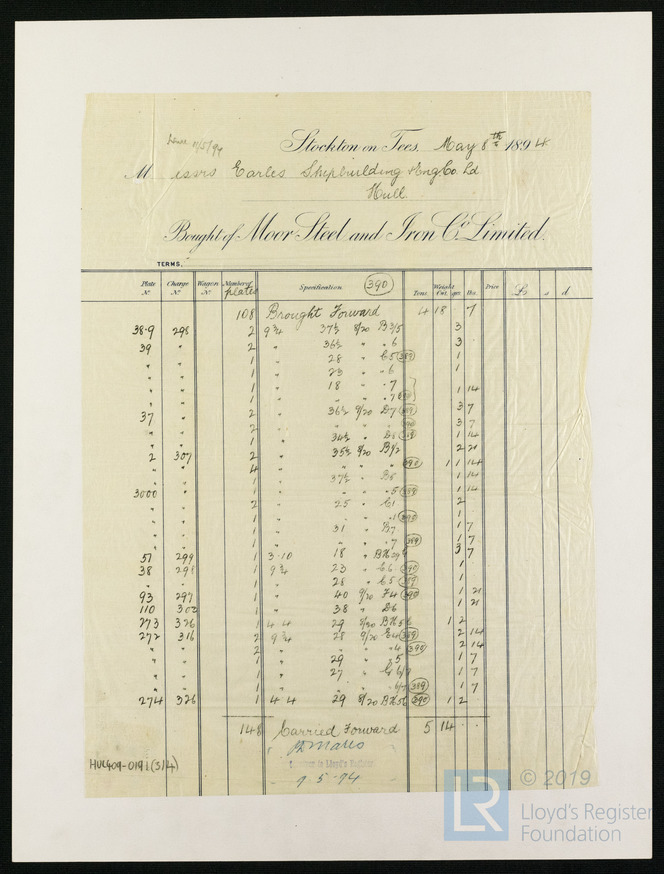 Stockton on Tees, May 8th 1894
Messrs Earles Shipbuilding & Eng Co. Ld
Hull.
Bought of Moor Steel and Iron Co. Limited.
TERMS,
Plate No. Charge No. Wagon No. Number of plates Specification 390 Tons Weight Cwt. qrs. lbs. Price £ s d
108 Brought Forward 4 18 7
38-9 298 2 9¾ 37½ 8/20 B3/5 3
39 " 2 " 36½ " " 6 3
" " 1 " 28 " C5 389 1
" " 1 " 23 " " 6 1
" " 1 " 18 " " 7 1 14
" 7
37 " 2 " 36½ 9/20 D7 3 7
" " 2 " 3 7
" " 1 " 34½ " D8 1 14
2 307 2 " 35½ 9/20 2 21
" " 4 " " " 390 1 1 14
" " 1 " 37½ " B5 1 14
3000 " 1 " " " 5 389 1 14
" " 2 " 25 " C1 2
" " 1 " 1 390 1
" " 1 " 31 " B7 1 7
" " 1 " " " 7 389 1 7
51 299 1 3·10 18 " 3 7
38 298 1 9¾ 23 " C6 390 1
" " 1 " 28 " C5 389 1
93 297 1 " 40 9/20 F4 390 1 21
110 302 1 " 38 " D6 1 21
273 326 1 4 4 29 8/20 1 2
272 316 2 9¾ 28 9/20 389 2 14
" " 2 " " " 4 390 2 14
" " 1 " 29 " 5 1 7
" " 1 " 27 " 1 7
" " 1 " 6/7 389 1 7
274 326 1 4 4 29 8/20 390 1 2
148 Carried Forward 5 14
Surveyor to Lloyd's Register
9-5-94
HUL409-0191 (3/4)
LR © 2019
Lloyd's Register
Foundation